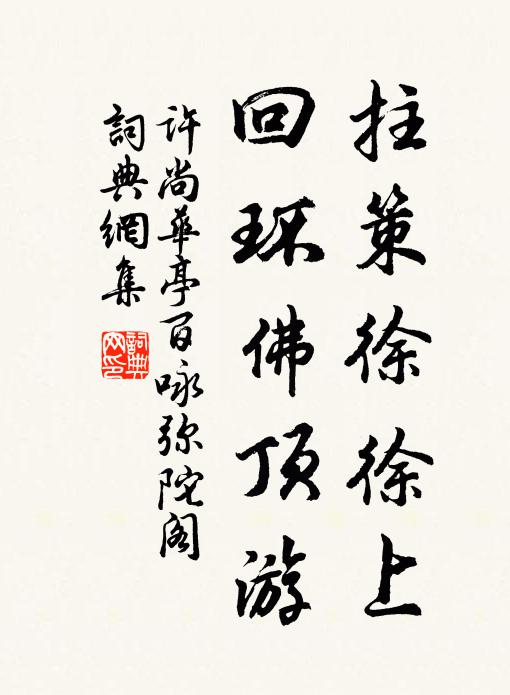 拄策徐徐上
回环佛顶游
许尚華亭百咏弥陀阁
詞典網集
詞典网印